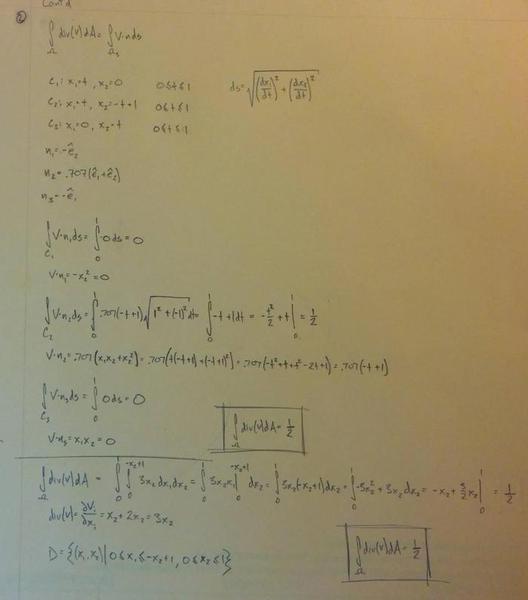 Cont'd
②
∫_Ω div(v)dA = ∫_Ωs v·n ds
C₁: x₁=t, x₂=0    0≤t≤1    ds=√((dx₁/dt)²+(dx₂/dt)²)
C₂: x₁=t, x₂=-t+1    0≤t≤1
C₃: x₁=0, x₂=t    0≤t≤1
n₁=-ê₂
n₂=.707(ê₁+ê₂)
n₃=-ê₁
∫_C₁ v·n₁ds = ∫₀¹ 0 ds = 0
v·n₁=-x₂²=0
∫_C₂ v·n₂ds = ∫₀¹ .707(-t+1)√(1²+(-1)²) dt = ∫₀¹ -t+1dt = -t²/2 + t |₀¹ = 1/2
v·n₂=.707(x₁x₂+x₂²)=.707(t(-t+1)+(-t+1)²)=.707(-t²+t+t²-2t+1)=.707(-t+1)
∫_C₃ v·n₃ds = ∫₀¹ 0ds = 0
∫_Ω div(v)dA = 1/2
v·n₃=x₁x₂=0
∫_Ω div(v)dA = ∫₀¹ ∫₀^(-x₂+1) 3x₂ dx₁dx₂ = ∫₀¹ 3x₂x₁ |₀^(-x₂+1) dx₂ = ∫₀¹ 3x₂(-x₂+1)dx₂ = ∫₀¹ -3x₂²+3x₂ dx₂ = -x₂+3/2 x₂ |₀¹ = 1/2
div(v)=∂vᵢ/∂xᵢ=x₂+2x₂=3x₂
D={(x₁,x₂)|0≤x₁≤-x₂+1, 0≤x₂≤1}
∫_Ω div(v)dA = 1/2